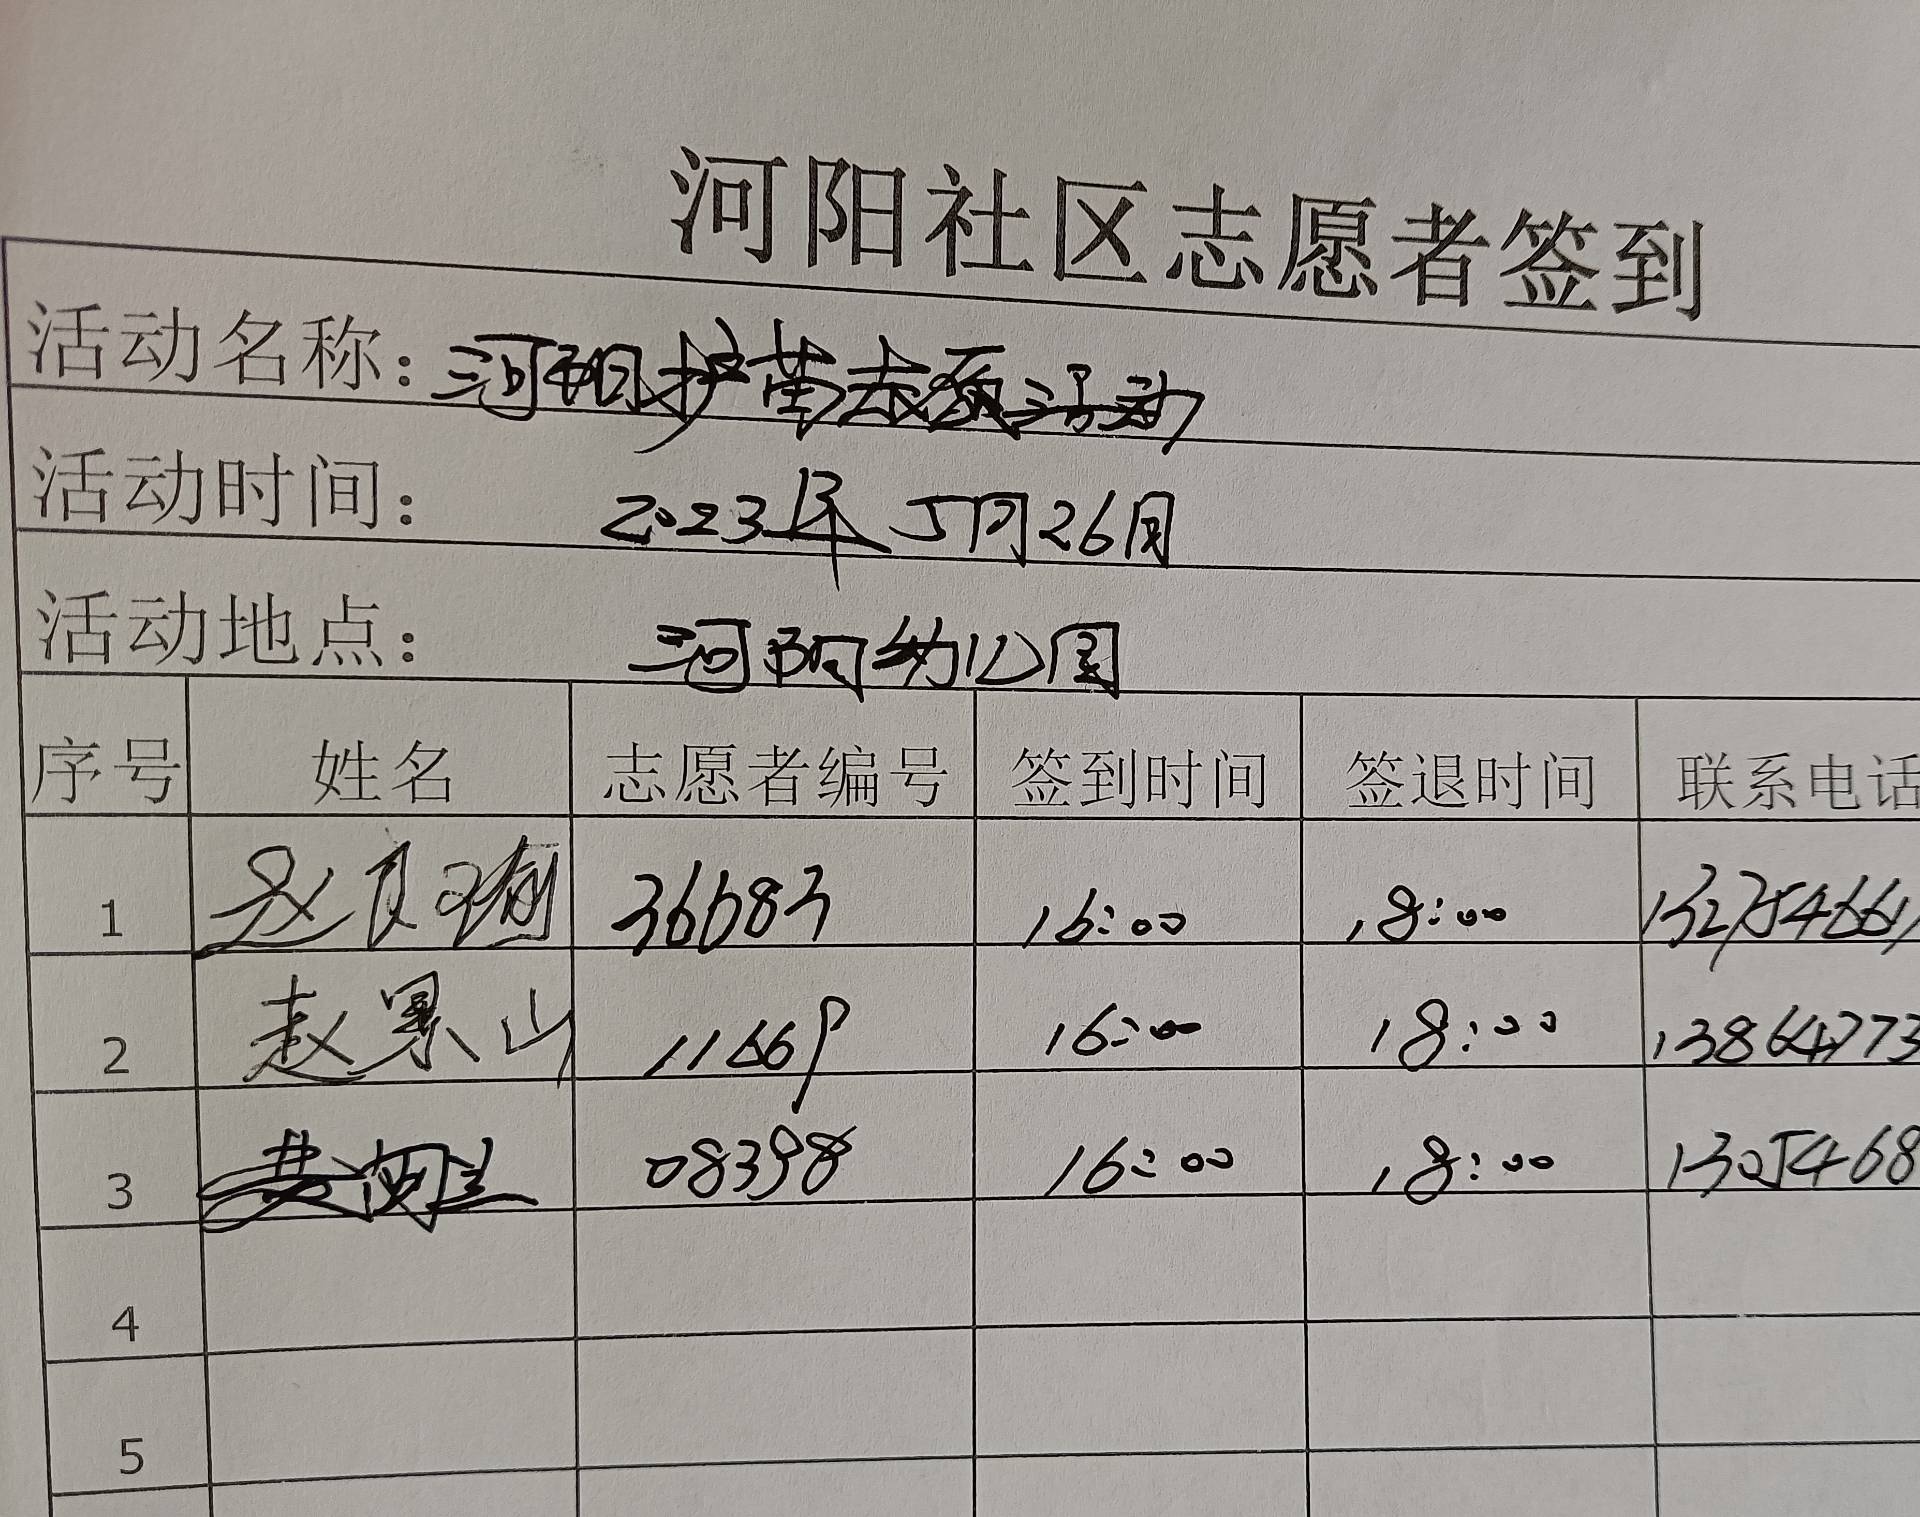 河阳社区志愿者签到
活动名称：河阳护苗志愿活动
活动时间： 2023年5月26日
活动地点： 河阳幼儿园
序号 姓名 志愿者编号 签到时间 签退时间 联系电话
1 赵 36683 16:00 18:00
2 赵景山 11669 16:00 18:00 13864773
3 08398 16:00 18:00 1305468
4
5